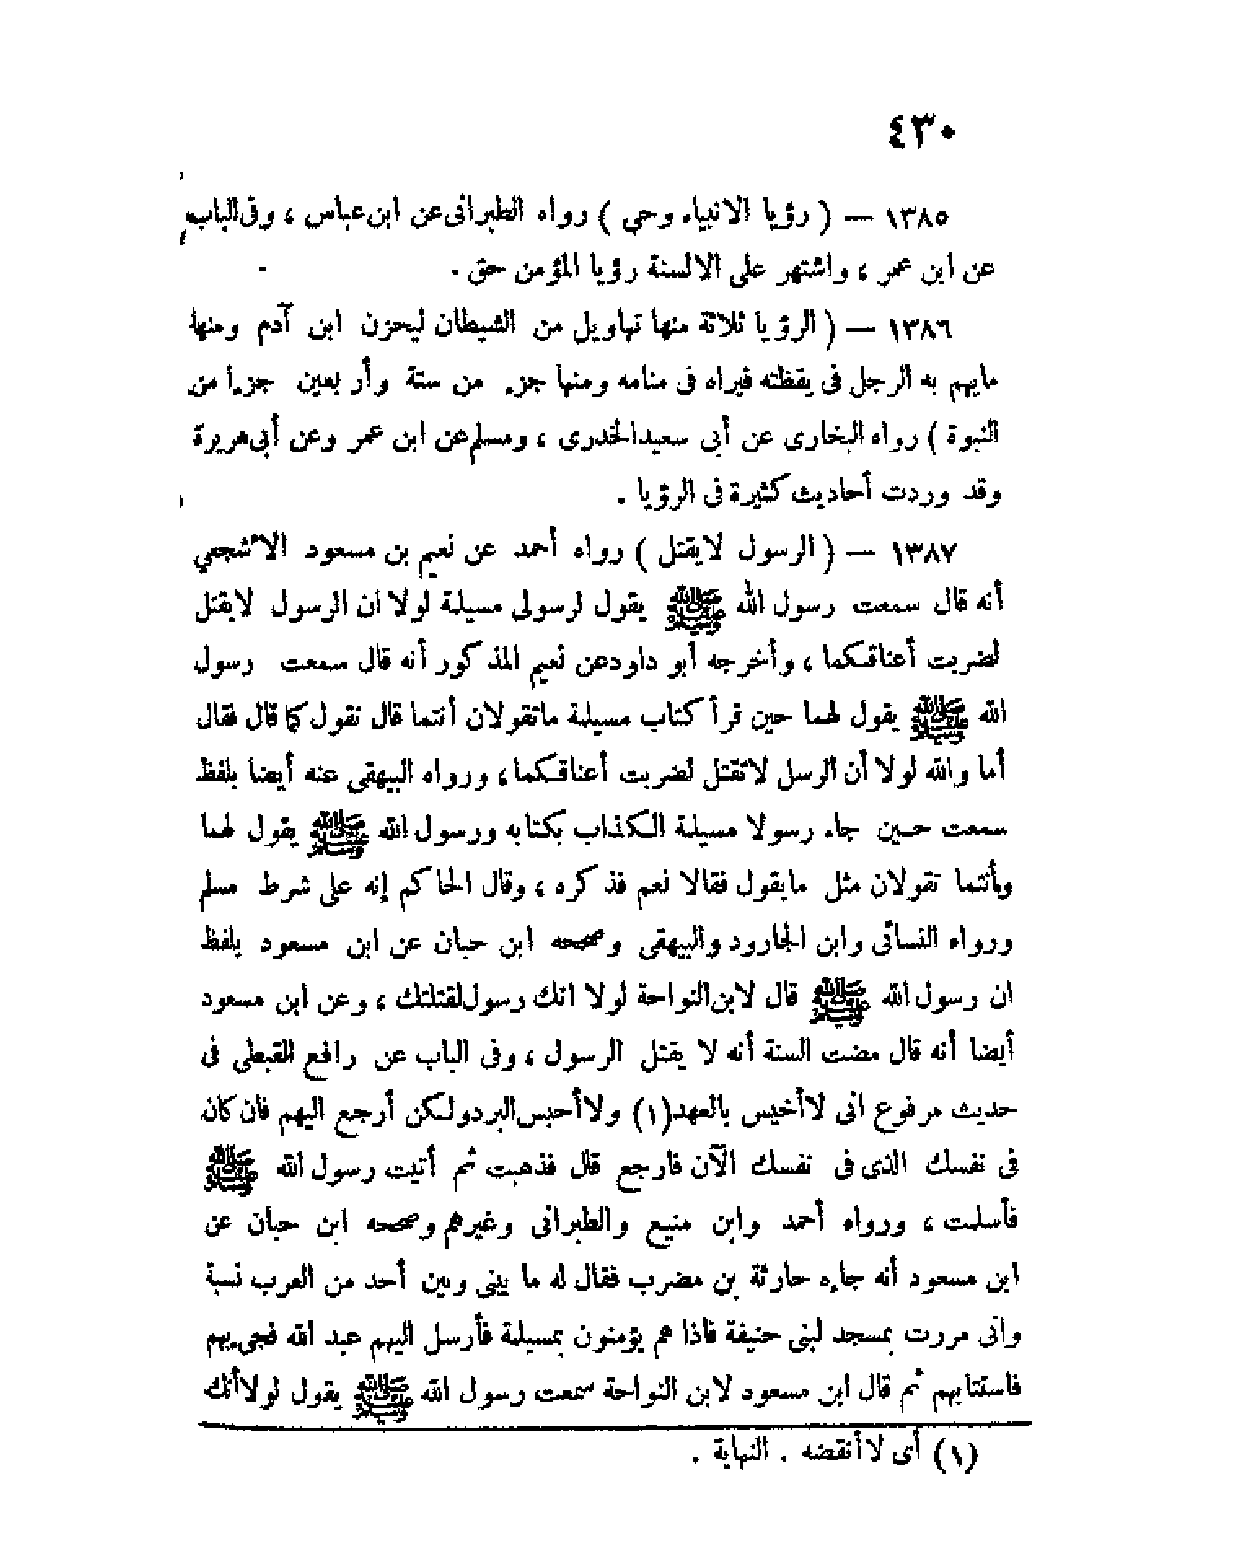 ٤٣٠
١٣٨٥ — ( رؤيا الانبياء وحي ) رواه الطبرانى عن ابن عباس ، وفى الباب
عن ابن عمر ، واشتهر على الالسنة رؤيا المؤمن حق .
١٣٨٦ — ( الرؤيا ثلاثة منها تهاويل من الشيطان ليحزن ابن آدم ومنها
مايهم به الرجل فى يقظته فيراه فى منامه ومنها جزء من ستة وأربعين جزءا من
النبوة ) رواه البخارى عن أبى سعيد الخدرى ، ومسلم عن ابن عمر وعن أبى هريرة
وقد وردت أحاديث كثيرة فى الرؤيا .
١٣٨٧ — ( الرسول لايقتل ) رواه أحمد عن نعيم بن مسعود الاشجعي
أنه قال سمعت رسول الله ﷺ يقول لرسولى مسيلمة لولا ان الرسول لايقتل
لضربت أعناقكما ، وأخرجه أبو داود عن نعيم المذكور أنه قال سمعت رسول
الله ﷺ يقول لهما حين قرأ كتاب مسيلمة ماتقولان أنتما قال نقول كما قال فقال
أما والله لولا أن الرسل لاتقتل لضربت أعناقكما ، ورواه البيهقى عنه أيضا بلفظ
سمعت حين جاء رسولا مسيلمة الكذاب بكتابه ورسول الله ﷺ يقول لهما
وأنتما تقولان مثل مايقول فقالا نعم فذكره ، وقال الحاكم إنه على شرط مسلم
ورواه النسائى وابن الجارود والبيهقى وصححه ابن حبان عن ابن مسعود بلفظ
ان رسول الله ﷺ قال لابن النواحة لولا انك رسول لقتلتك ، وعن ابن مسعود
أيضا أنه قال مضت السنة أنه لا يقتل الرسول ، وفى الباب عن رافع القبطى فى
حديث مرفوع انى لاأخيس بالعهد(١) ولاأحبس البرد ولكن أرجع اليهم فان كان
فى نفسك الذى فى نفسك الآن فارجع قال فذهبت ثم أتيت رسول الله ﷺ
فأسلمت ، ورواه أحمد وابن منيع والطبرانى وغيرهم وصححه ابن حبان عن
ابن مسعود أنه جاءه حارثة بن مضرب فقال له ما بينى وبين أحد من العرب نسبة
وانى مررت بمسجد لبنى حنيفة فاذا هم يؤمنون بمسيلمة فأرسل اليهم عبد الله فجىء بهم
فاستتابهم ثم قال ابن مسعود لابن النواحة سمعت رسول الله ﷺ يقول لولاأنك
(١) أى لاأنقضه . النهاية .